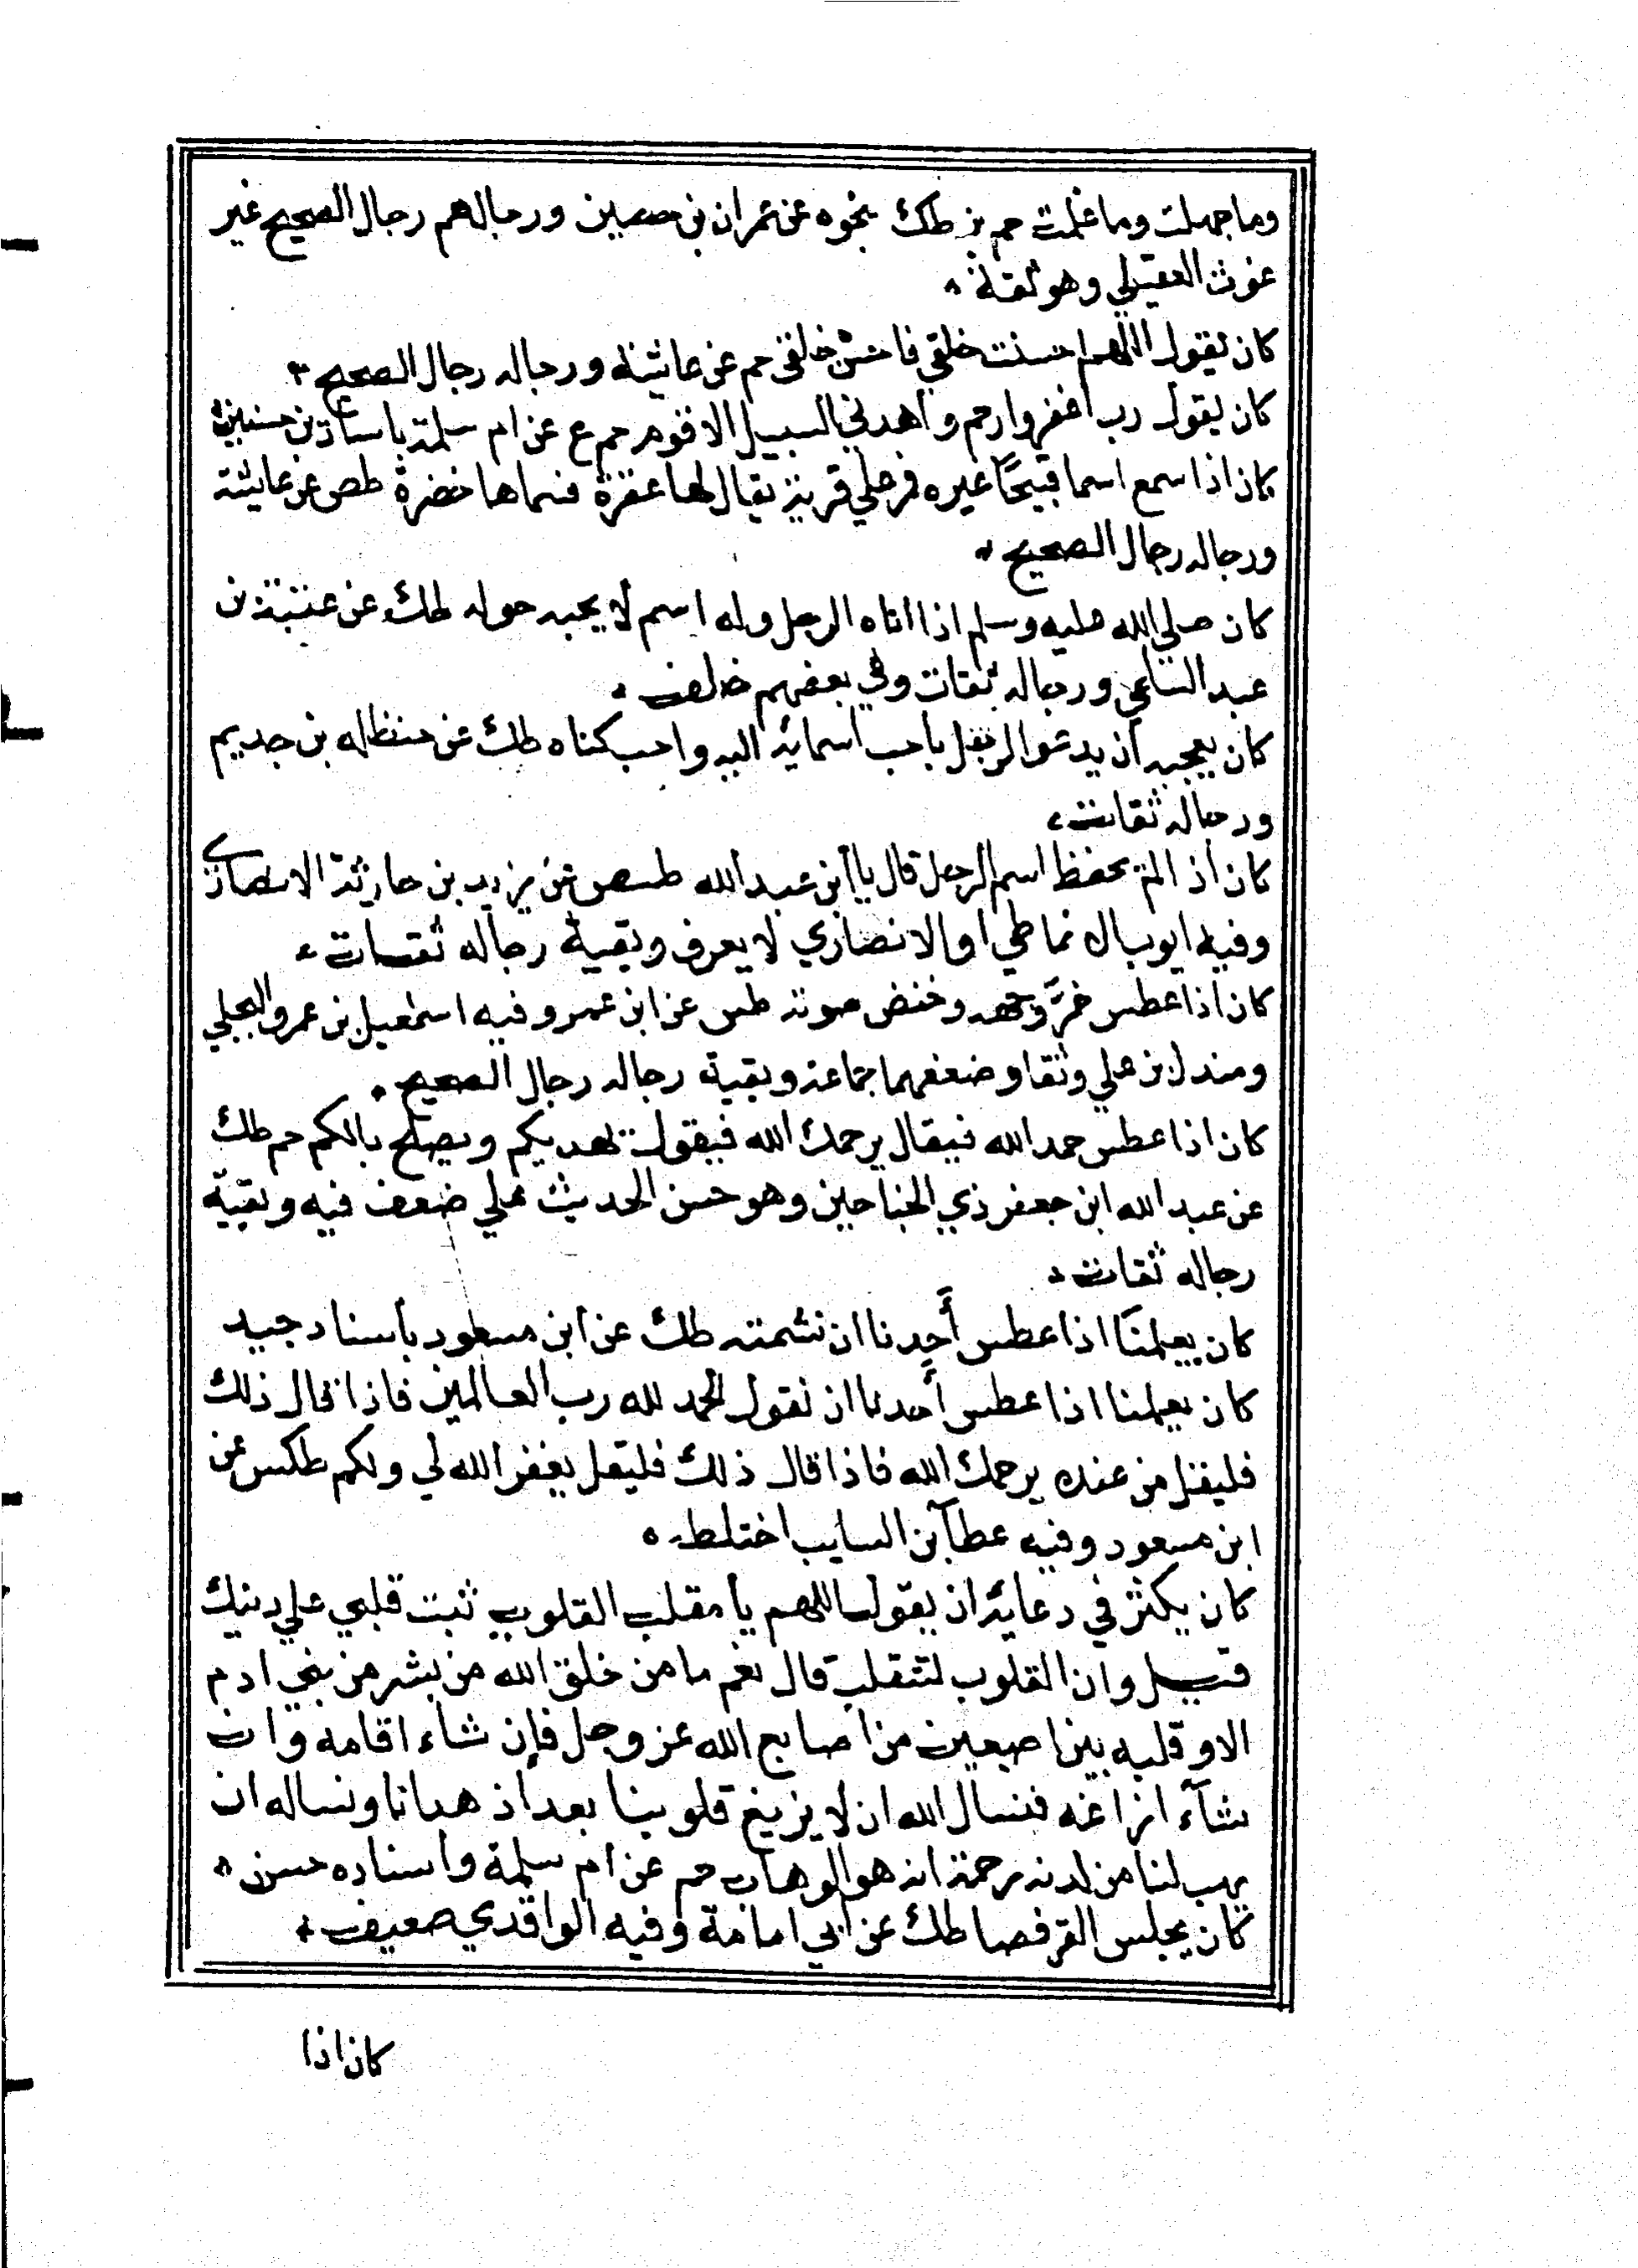 وما جهلت وما علمت حم بز طك بنحوه عن عمران بن حصين ورجالهم رجال الصحيح غير
عون العقيلي وهو ثقة
كان يقول اللهم احسنت خلقي فاحسن خلقي حم عن عائشة ورجاله رجال الصحيح
كان يقول رب اغفر وارحم واهدني السبيل الاقوم حم ع عن ام سلمة باسنادين حسنين
كان اذا سمع اسما قبيحًا غيره فمر علي قرية يقال لها عفرة فسماها خضرة طص عن عايشة
ورجاله رجال الصحيح
كان صلي الله عليه وسلم اذا اتاه الرجل وله اسم لا يحبه حوله طك عن عتبة بن
عبد السلمي ورجاله ثقات وفي بعضهم خلف
كان يعجبه ان يدعو الرجل باحب اسمايه اليه واحب كناه طك عن حنظله بن حديم
ورجاله ثقات
كان اذا لم يحفظ اسم الرجل قال يا ابن عبد الله طص عن يزيد بن حارثة الانصاري
وفيه ايوب الانماطي او الانصاري لا يعرف وبقية رجاله ثقات
كان اذا عطس خمر وجهه وخفض صوته طس عن ابن عمر وفيه اسمعيل بن عمرو البجلي
ومندل بن علي وثقا وضعفهما جماعة وبقية رجاله رجال الصحيح
كان اذا عطس حمد الله فيقال يرحمك الله فيقول يهديكم ويصلح بالكم حم طك
عن عبد الله ابن جعفر ذي الجناحين وهو حسن الحديث علي ضعف فيه وبقية
رجاله ثقات
كان يعلمنا اذا عطس أحدنا ان نشمته طك عن ابن مسعود باسناد جيد
كان يعلمنا اذا عطس أحدنا ان نقول الحمد لله رب العالمين فاذا قال ذلك
فليقل من عنده يرحمك الله فاذا قال ذلك فليقل يغفر الله لي ولكم طكس عن
ابن مسعود وفيه عطآ بن السايب اختلط
كان يكثر في دعايه ان يقول اللهم يا مقلب القلوب ثبت قلبي علي دينك
قيل وان القلوب لتتقلب قال نعم ما من خلق الله من بشر من بني ادم
الا وقلبه بين اصبعين من اصابع الله عز وجل فإن شاء اقامه وان
شآء ازاغه فنسال الله ان لا يزيغ قلوبنا بعد اذ هدانا ونساله ان
يهب لنا من لدنه رحمة انه هو الوهاب حم عن ام سلمة واسناده حسن
كان يجلس القرفصا طك عن ابي امامة وفيه الواقدي ضعيف
كان اذا